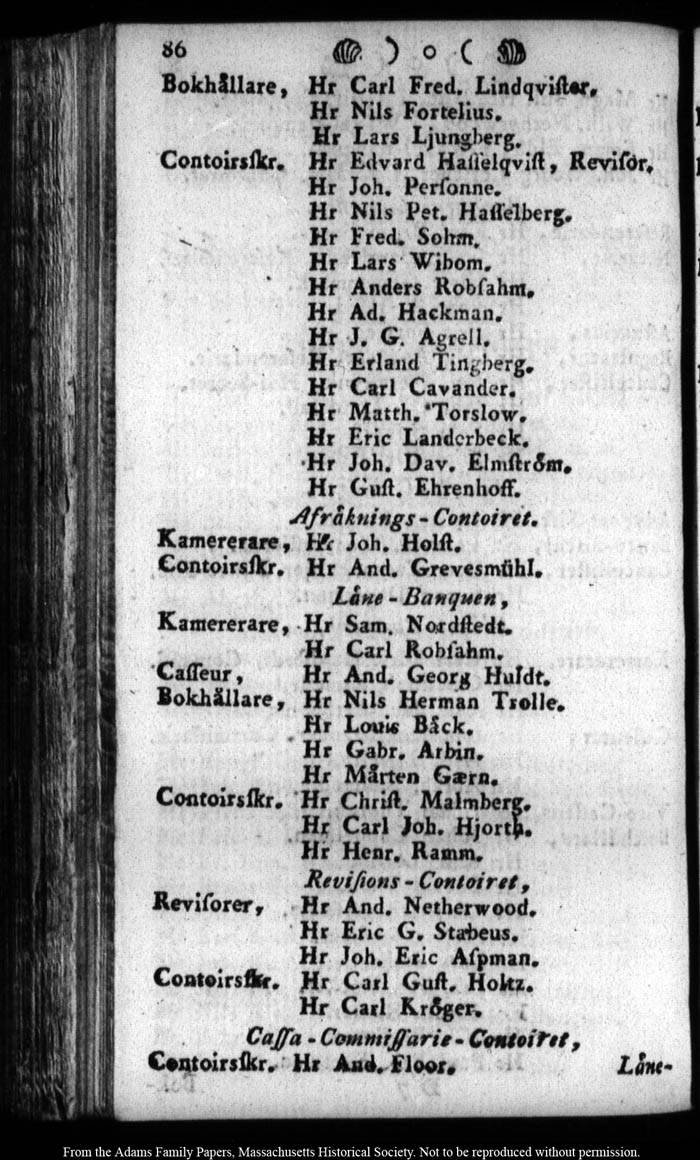 86 ) o (
Bokhållare, Hr Carl Fred. Lindqviſter.
Hr Nils Fortelius.
Hr Lars Ljungberg.
Contoirsſkr. Hr Edvard Haſſelqviſt, Reviſor.
Hr Joh. Perſonne.
Hr Nils Pet. Haſſelberg.
Hr Fred. Sohm.
Hr Lars Wibom.
Hr Anders Robſahm.
Hr Ad. Hackman.
Hr J. G. Agrell.
Hr Erland Tingberg.
Hr Carl Cavander.
Hr Matth. Torslow.
Hr Eric Landerbeck.
Hr Joh. Dav. Elmſtrŏm.
Hr Guſt. Ehrenhoff.
Afråknings-Contoiret.
Kamererare, Hr Joh. Holſt.
Contoirsſkr. Hr And. Grevesmühl.
Låne-Banquen,
Kamererare, Hr Sam. Nordſtedt.
Hr Carl Robſahm.
Caſſeur, Hr And. Georg Huldt.
Bokhållare, Hr Nils Herman Trolle.
Hr Louis Båck.
Hr Gabr. Arbin.
Hr Mårten Gærn.
Contoirsſkr. Hr Chriſt. Malmberg.
Hr Carl Joh. Hjorth.
Hr Henr. Ramm.
Reviſions-Contoiret,
Reviſorer, Hr And. Netherwood.
Hr Eric G. Stabeus.
Hr Joh. Eric Aſpman.
Contoirsſkr. Hr Carl Guſt. Holtz.
Hr Carl Krŏger.
Caſſa-Commiſſarie-Contoiret,
Contoirsſkr. Hr And. Floor. Låne-
From the Adams Family Papers, Massachusetts Historical Society. Not to be reproduced without permission.